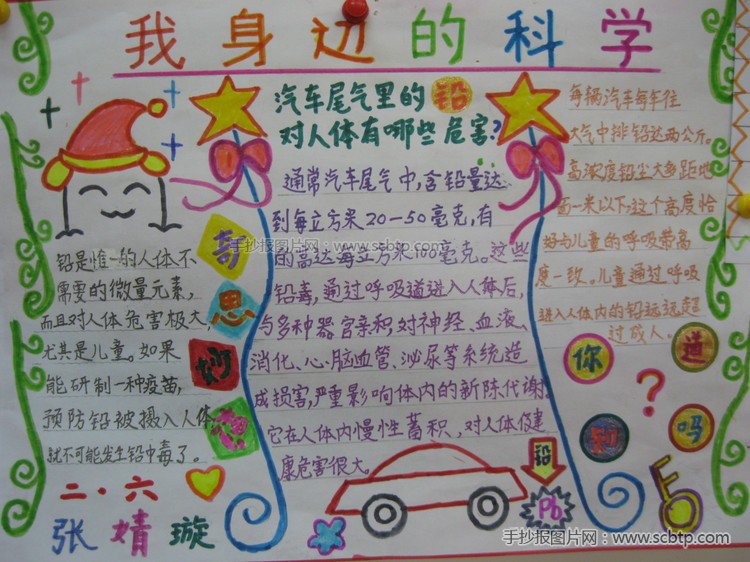 我身边的科学
汽车尾气里的铅
对人体有哪些危害?
通常汽车尾气中,含铅量达
到每立方米20—50毫克,有
的高达每立方米100毫克。这些
铅毒,通过呼吸道进入人体后,
与多种器官亲和,对神经、血液、
消化、心、脑血管、泌尿等系统造
成损害,严重影响体内的新陈代谢。
它在人体内慢性蓄积,对人体健
康危害很大。
铅是惟一的人体不
需要的微量元素,
而且对人体危害极大,
尤其是儿童。如果
能研制一种疫苗,
预防铅被摄入人体
就不可能发生铅中毒了。
奇
思
妙
想
二·六
张婧璇
每辆汽车每年往
大气中排铅达两公斤。
高浓度铅尘大多距地
面一米以下,这个高度恰
好与儿童的呼吸带高
度一致。儿童通过呼吸
进入人体内的铅远远超
过成人。
你
知
道
吗
?
铅
Pb
手抄报图片网:www.scbtp.com
手抄报图片网:www.scbtp.com